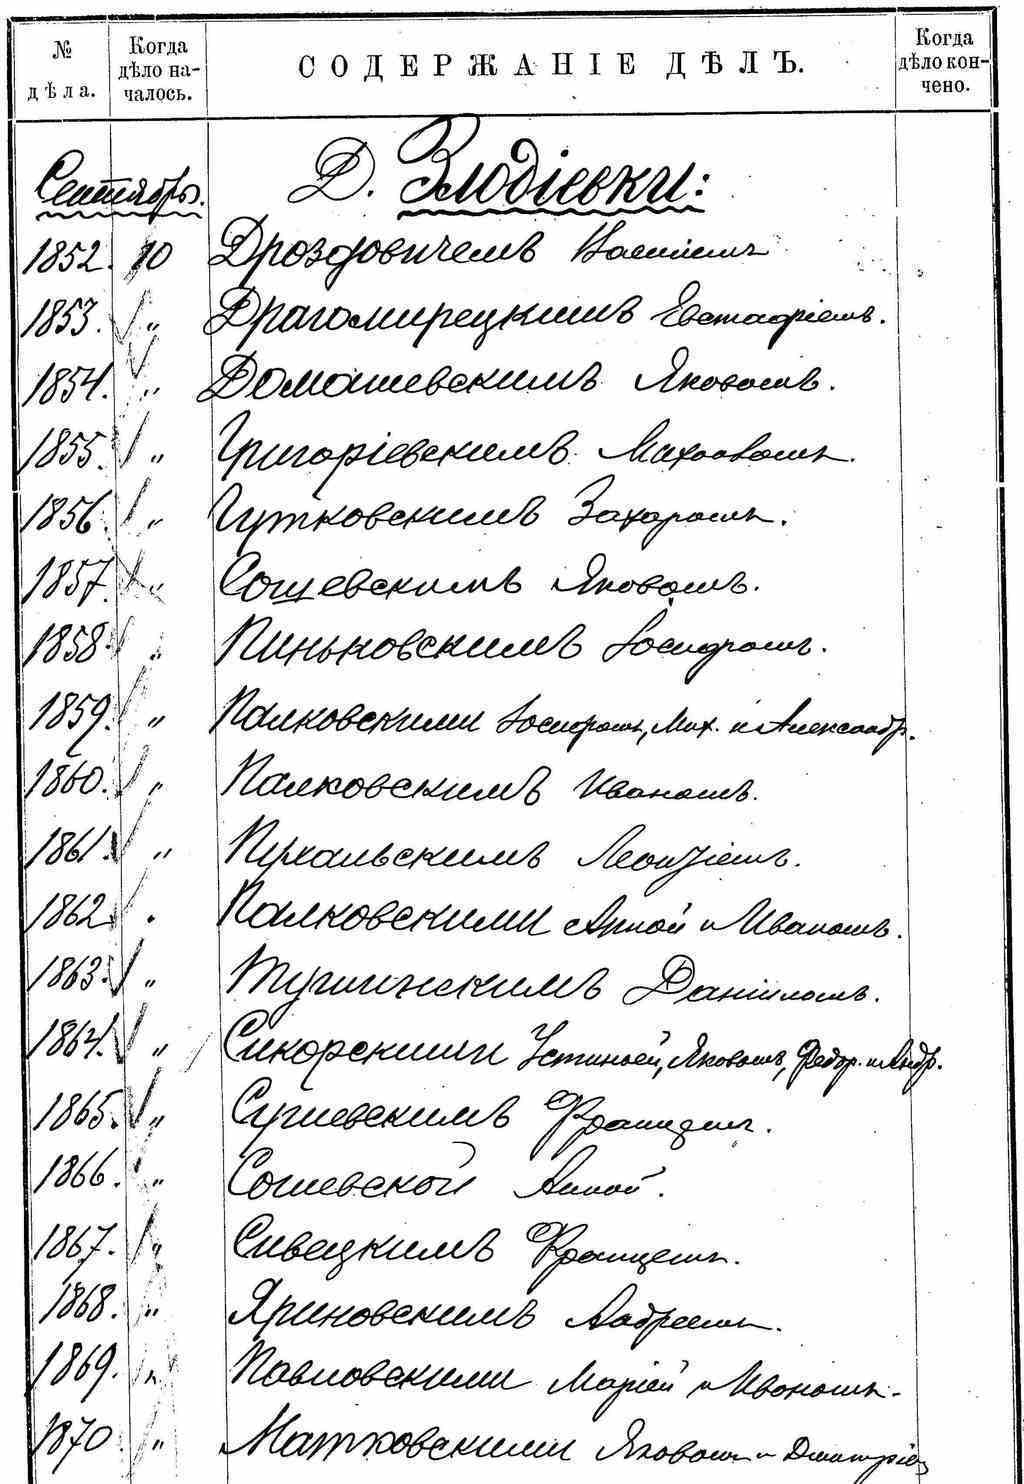 № дѣла. Когда дѣло началось. СОДЕРЖАНІЕ ДѢЛЪ. Когда дѣло кончено.
Сентябрь. Д. Злодіевки:
1852. 10 Дроздовичемъ
1853. „ Драгомирецкимъ Евстафіемъ.
1854. „ Домашевскимъ Яковомъ.
1855. „ Григоріевскимъ
1856. „ Гутковскимъ Захаромъ.
1857. „ Сощевскимъ Яковомъ.
1858. „ Пиньковскимъ Іосифомъ.
1859. „ Палковскими Іосифомъ, Мих. и Александр.
1860. „ Палковскимъ Иваномъ.
1861. „ Пухальскимъ Леонтіемъ.
1862. „ Палковскими Анной и Иваномъ.
1863. „ Тушинскимъ Даніиломъ.
1864. „ Сикорскими Устиньей, Яковомъ, Федор. и Андр.
1865. „ Сушевскимъ Францемъ.
1866. „ Сошевской Анной.
1867. „ Сивецкимъ Францемъ.
1868. „ Яриновскимъ Андреемъ.
1869. „ Павловскими Маріей и Иваномъ.
1870 „ Матковскими Яковомъ и Дмитріе